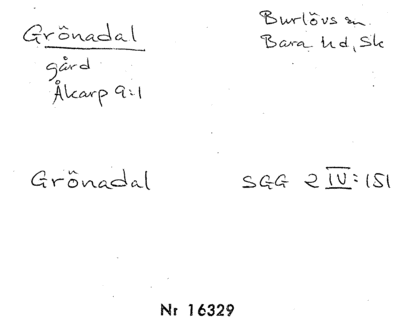 Grönadal
Burlövs sn
gård
Bara hd, Sk
Åkarp 9:1
Grönadal
SGG 2 IV:151
Nr 16329